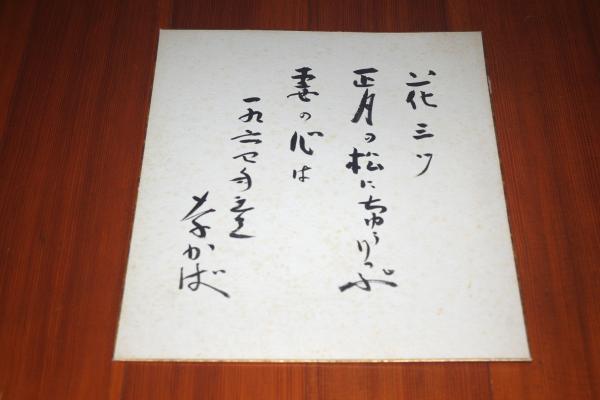 花三ツ
正月の松にちゅうりっぷ
妻の心は
一九六七年
かば